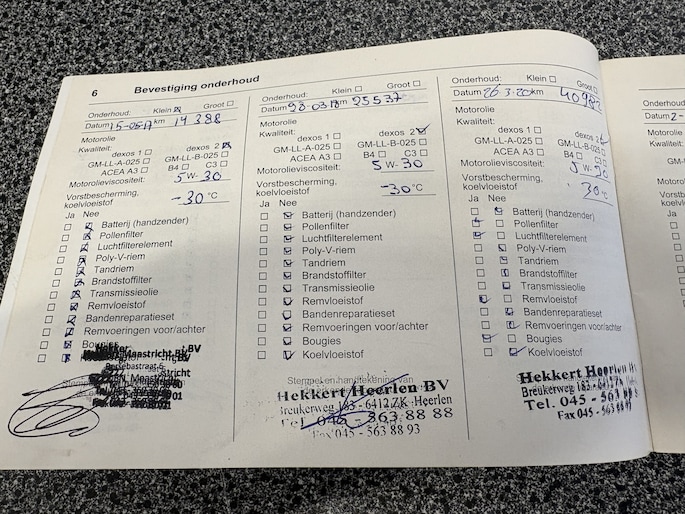 6 Bevestiging onderhoud
Onderhoud: Klein Groot
Datum 15-05-17 km 14 388
Motorolie
Kwaliteit:
dexos 1 dexos 2
GM-LL-A-025 GM-LL-B-025
ACEA A3 B4 C3
Motorolieviscositeit: 5 W- 30
Vorstbescherming,
koelvloeistof -30 °C
Ja Nee
Batterij (handzender)
Pollenfilter
Luchtfilterelement
Poly-V-riem
Tandriem
Brandstoffilter
Transmissieolie
Remvloeistof
Bandenreparatieset
Remvoeringen voor/achter
Bougies
Maastricht BV
Onderhoud: Klein Groot
Datum 03 18 km 25537
Motorolie
Kwaliteit:
dexos 1 dexos 2
GM-LL-A-025 GM-LL-B-025
ACEA A3 B4 C3
Motorolieviscositeit: 5 W- 30
Vorstbescherming,
koelvloeistof -30 °C
Ja Nee
Batterij (handzender)
Pollenfilter
Luchtfilterelement
Poly-V-riem
Tandriem
Brandstoffilter
Transmissieolie
Remvloeistof
Bandenreparatieset
Remvoeringen voor/achter
Bougies
Koelvloeistof
Stempel en handtekening van
Hekkert Heerlen BV
Breukerweg 183 - 6412 ZK Heerlen
Tel. 045 - 563 88 88
Fax 045 - 563 88 93
Onderhoud: Klein Groot
Datum 26 3.20 km
Motorolie
Kwaliteit:
dexos 1 dexos 2
GM-LL-A-025 GM-LL-B-025
ACEA A3 B4 C3
Motorolieviscositeit: 5 W- 30
Vorstbescherming,
koelvloeistof 30 °C
Ja Nee
Batterij (handzender)
Pollenfilter
Luchtfilterelement
Poly-V-riem
Tandriem
Brandstoffilter
Transmissieolie
Remvloeistof
Bandenreparatieset
Remvoeringen voor/achter
Bougies
Koelvloeistof
Hekkert Heerlen
Breukerweg
Tel. 045 - 563
Fax 045 - 563
Onderhoud
Datum 2-
Motorolie
Kwaliteit: